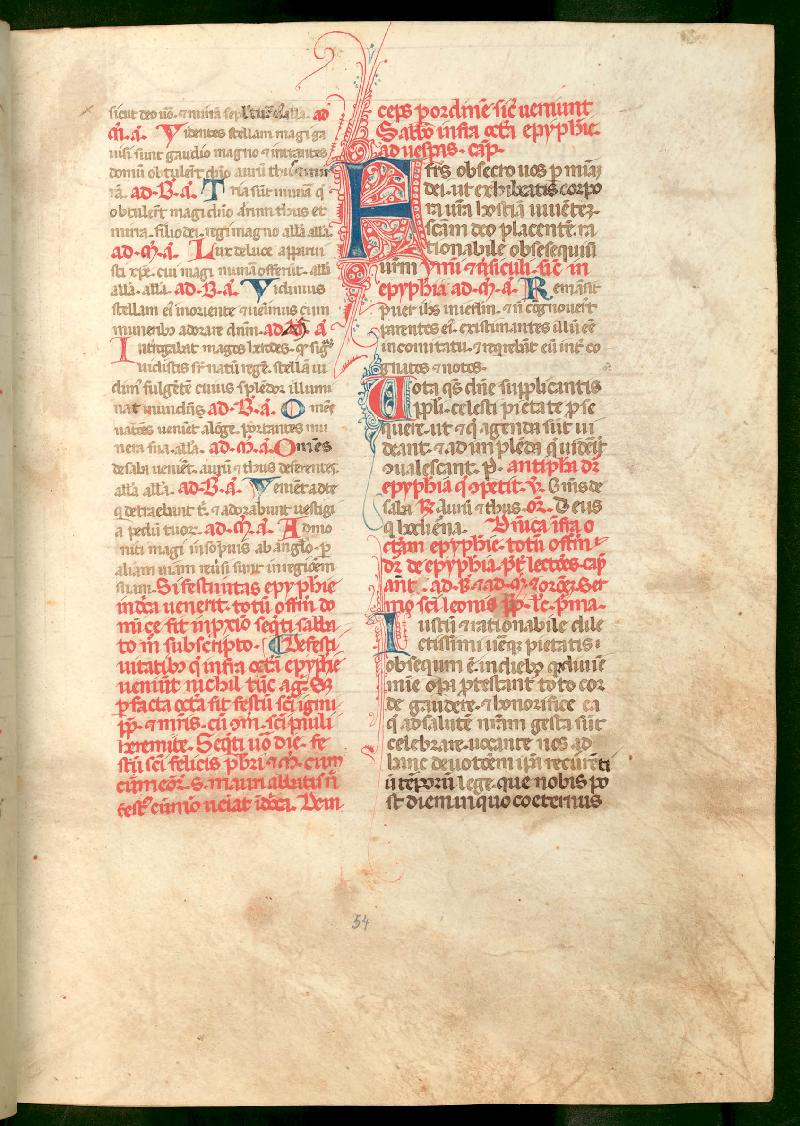 sicut deo uero. et mirra sepulture alla. ad
m. a. Videntes stellam magi ga
uisi sunt gaudio magno et intrantes
domum obtulerunt dño aurum thus et mir
ra. ad. B. a. Tria sūt munera q̄
obtulerūt magi dño aurum thus et
mirra. filio dei. regi magno alla alla.
ad. m. a. Lux de luce apparui
sti xp̄e. cui magi munera offerūt. alla
alla. alla. ad. B. a. Vidimus
stellam ei᷒ in oriente et uenimus cum
muneribꝰ adorare dnm̄. ad m. a
Interrogabat magos herodes. qd̄ signū
uidistis sr̄ natū regē. stellā ui
dim᷒ fulgētē cuius splēdor illumi
nat mundū. ad. B. a. Omēs
nationes ueniēt a lōge. portantes mu
nera sua. alla. ad. m. a. Omnes
de saba uenient. aurū et thus deferentes.
alla alla. ad. B. a. Venient ad te
q̄ detraebant t̄. et adorabunt uestigi
a pedū tuoꝝ. ad. m. a. Admo
niti magi in sōpnis ab anglo. p̄
aliam uiam reūsi sunt in regionem
suam. Si festiuitas epyphie
in dn̄ica uenerit. totū offm̄ do
mīce fit in p̄xio seq̄ti sabba
to in subscripto. De festi
uitatibꝰ q̄ infra octā epyphie
ueniūt nichil tūc agr̄. Sꝫ
p̄ facta octā fit festū sc̄i igini
pp̄. et mr̄is. cū om̄. sc̄i pauli
heremite. Seq̄ti uo die. fe
stū sc̄i felicis pbr̄i et m̄. cum
cūmeōr. s. mauri abbatis n̄
festꝫ cū nō ueniat i dn̄ica. Dein
ceps p ordinē sic̄ ueniunt
Sabbo infra octā epyphie.
ad uesp̄as. cap̄.
Fr̄es obsecro uos p̄ mīam
dei. ut exhibeatis corpo
ra ur̄a hostiā uiuētē.
sc̄am deo placentē. ra
tionabile obsequiū
ur̄m ymn᷒ et u̇siculi. sic̄ in
epyphia ad. m. a. Remāsit
puer ihs in ierl̄m. et nō cognouerūt
parentes ei᷒. existimantes illū eē
in comitatu. et requirebāt eū int̄ co
gnatos et notos.
Uota q̄s dn̄e supplicantis
ppl̄i. celesti pietate p̄se
quere. ut et q̄ agenda sūt ui
deant. et ad implēda q̄ uiderīt
cōualescant. p̄. antipha de
epyphia q̄ opetit. v̄. Om̄s de
saba R̄ Aurū et thus. or̄. Deus
q̄ hodierna. Dn̄ica ifra o
ctam epyphie. totū offm̄
dr̄ de epyphia. p̄t̄ lectōes. cap̄
ant̄. ad. B. et ad. m. et or̄oꝫ. Ser
mo sc̄i leonis pp̄. lc̄. p̄ma.
Iustū et rationabile dile
ctissimi ueꝝq̄ pietatis
obsequium ē. in diebꝰ q̄ diuine
mīe opa ꝓtestant̄ toto cor
de gaudere. et honorifice ea
q̄ ad salutē nrām gesta sūt
celebrare. uocante nos ad
hanc deuotōem ip̄a recurēti
ū tēporū lege. que nobis po
st diem in quo coeternus
54